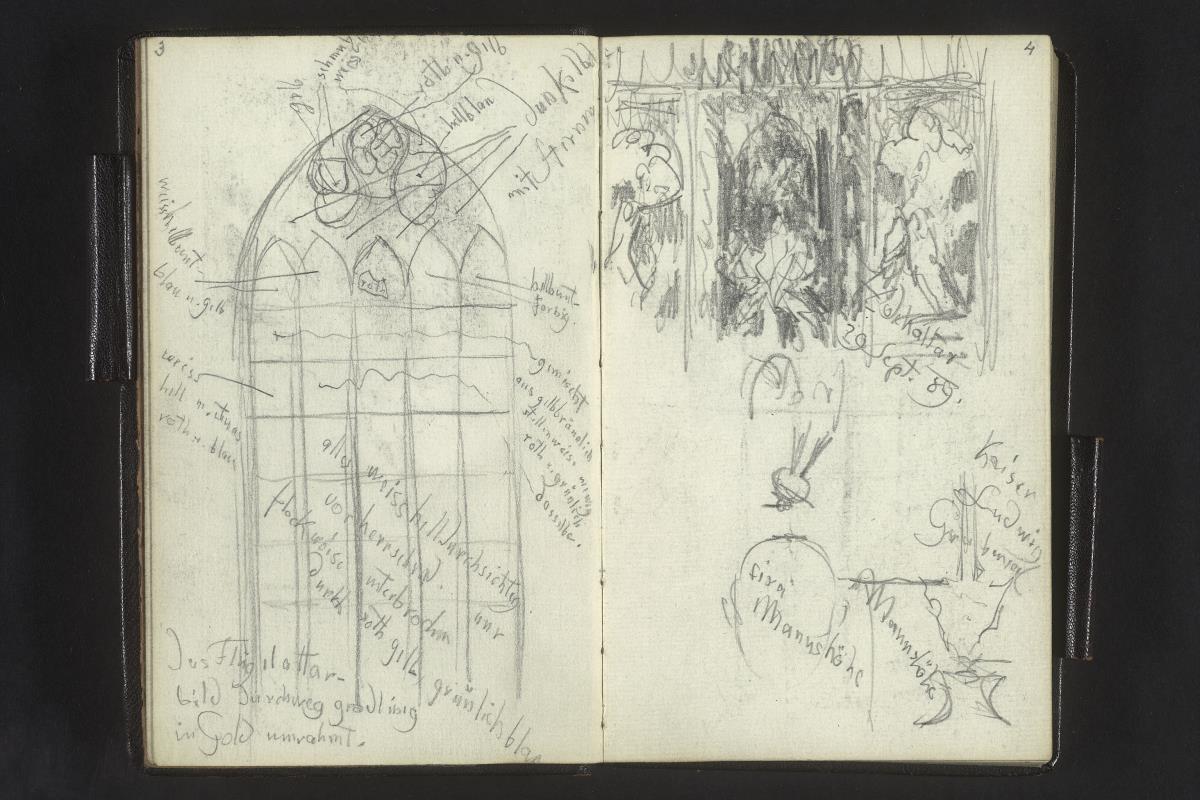 3
gelb
roth u. gelb
hellblau
dunkelblau
mit
weisshellbunt-
blau u. gelb
roth
hellbunt-
farbig.
weiss
hell m. etwas
roth u. blau
gemischt
aus gelbbräunlich
stellenweise wenig
roth u. grünlich
dasselbe.
alles weiss helldurchsichtig
vorherrschend. nur
flockweise unterbrochen
durch roth gelb grünlichblau
Das Flügelaltar-
bild durchweg gradlinig
in Gold umrahmt.
4
Hochaltar
20 Sept. 89.
Kaiser
Ludwig
Grabmal
circa
Mannshöhe
Mannshöhe